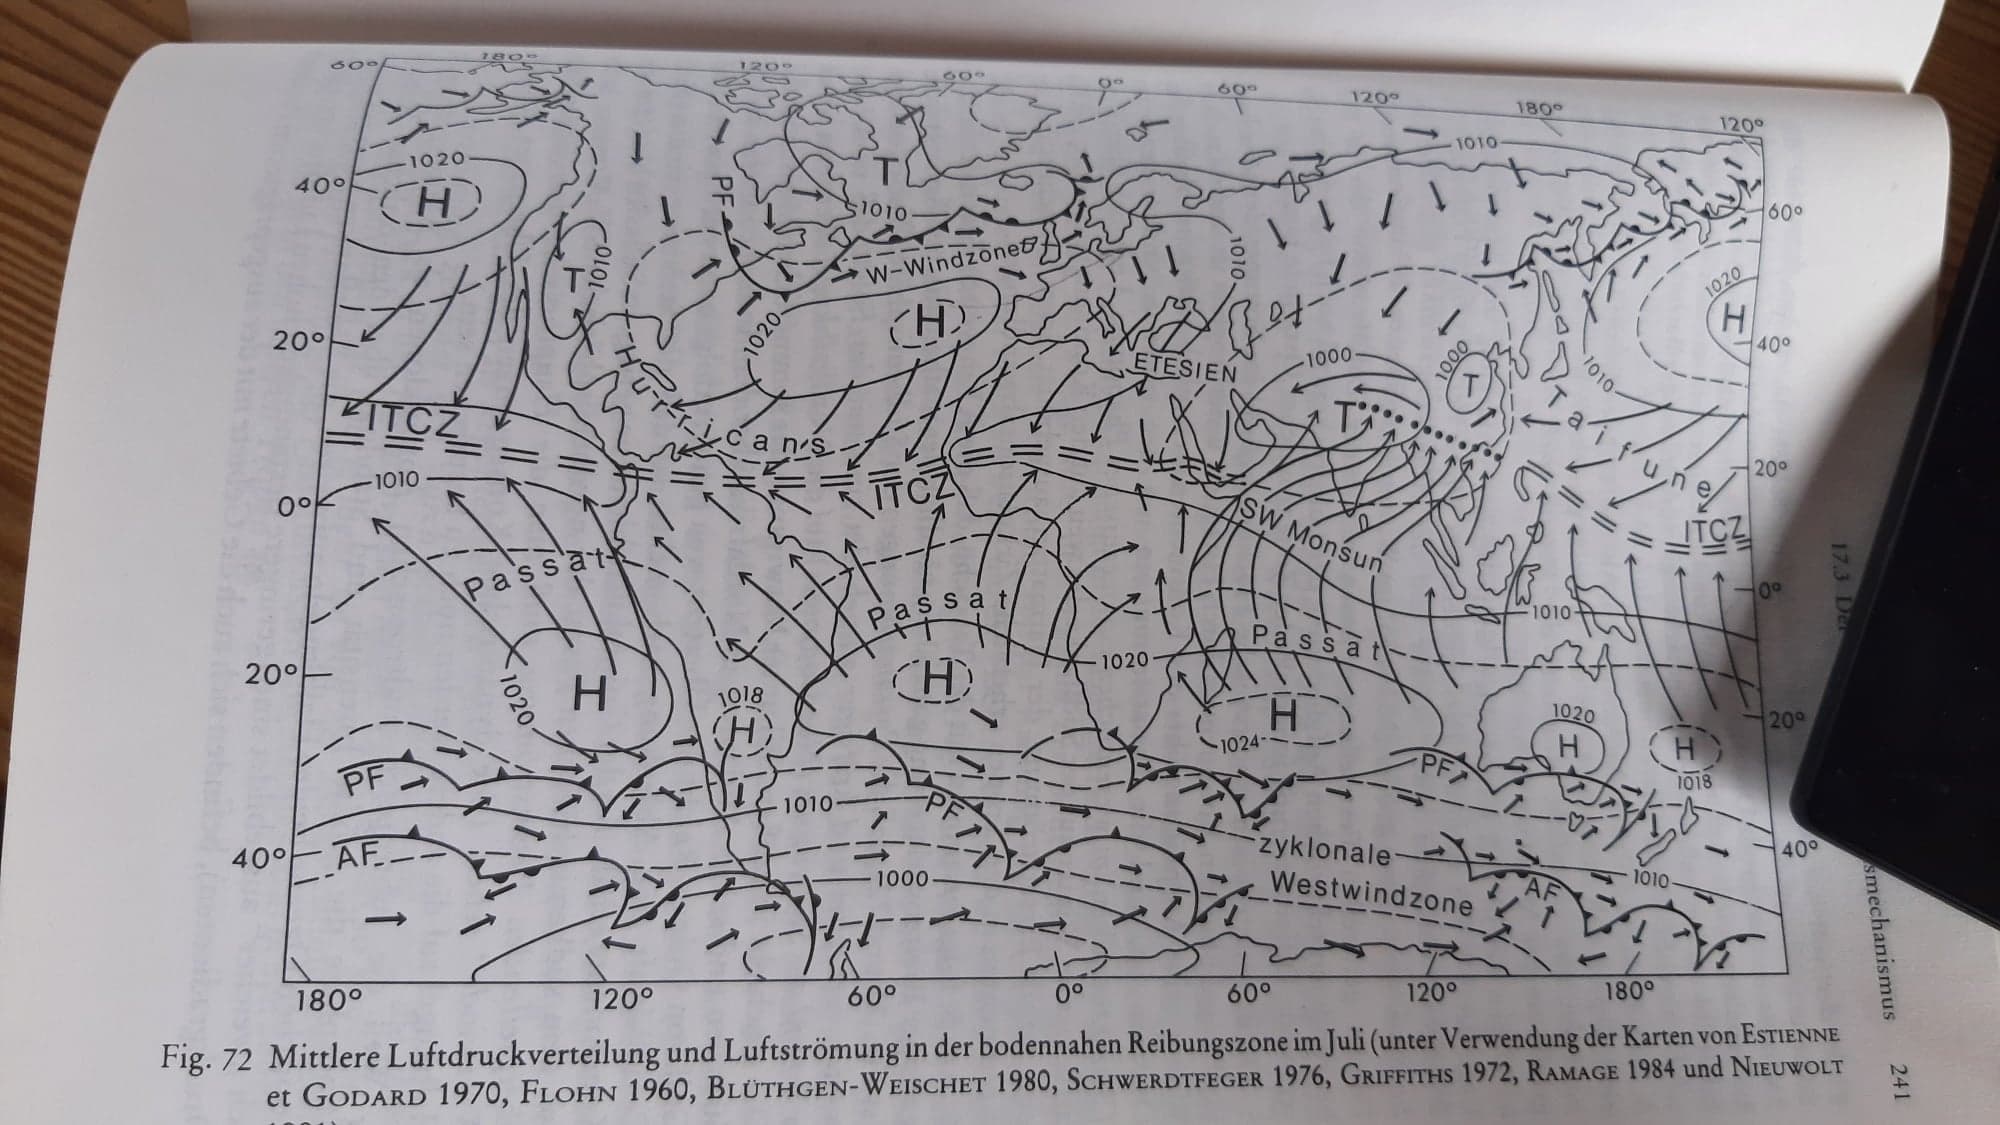 180° 120° 60° 0° 60° 120° 180° 120°
60°
1010
1020
40° H
T
PF
1010
60°
T 1010
W-Windzone
1010
1020 H
1020
H
20°
Hurricans
ETESIEN
1000
T
1000
T
1010
Taifune
40°
ITCZ
ITCZ
20°
1010
0°
SW Monsun
ITCZ
Passat
Passat
Passat
1010
0°
20°
1020
H
1018
H
H
1020
H
1024
1020
H
H
1018
20°
PF
PF
PF
1010
AF
zyklonale
Westwindzone
40°
1000
AF
1010
40°
180° 120° 60° 0° 60° 120° 180°
Fig. 72 Mittlere Luftdruckverteilung und Luftströmung in der bodennahen Reibungszone im Juli (unter Verwendung der Karten von ESTIENNE
et GODARD 1970, FLOHN 1960, BLÜTHGEN-WEISCHET 1980, SCHWERDTFEGER 1976, GRIFFITHS 1972, RAMAGE 1984 und NIEUWOLT
17.3
241